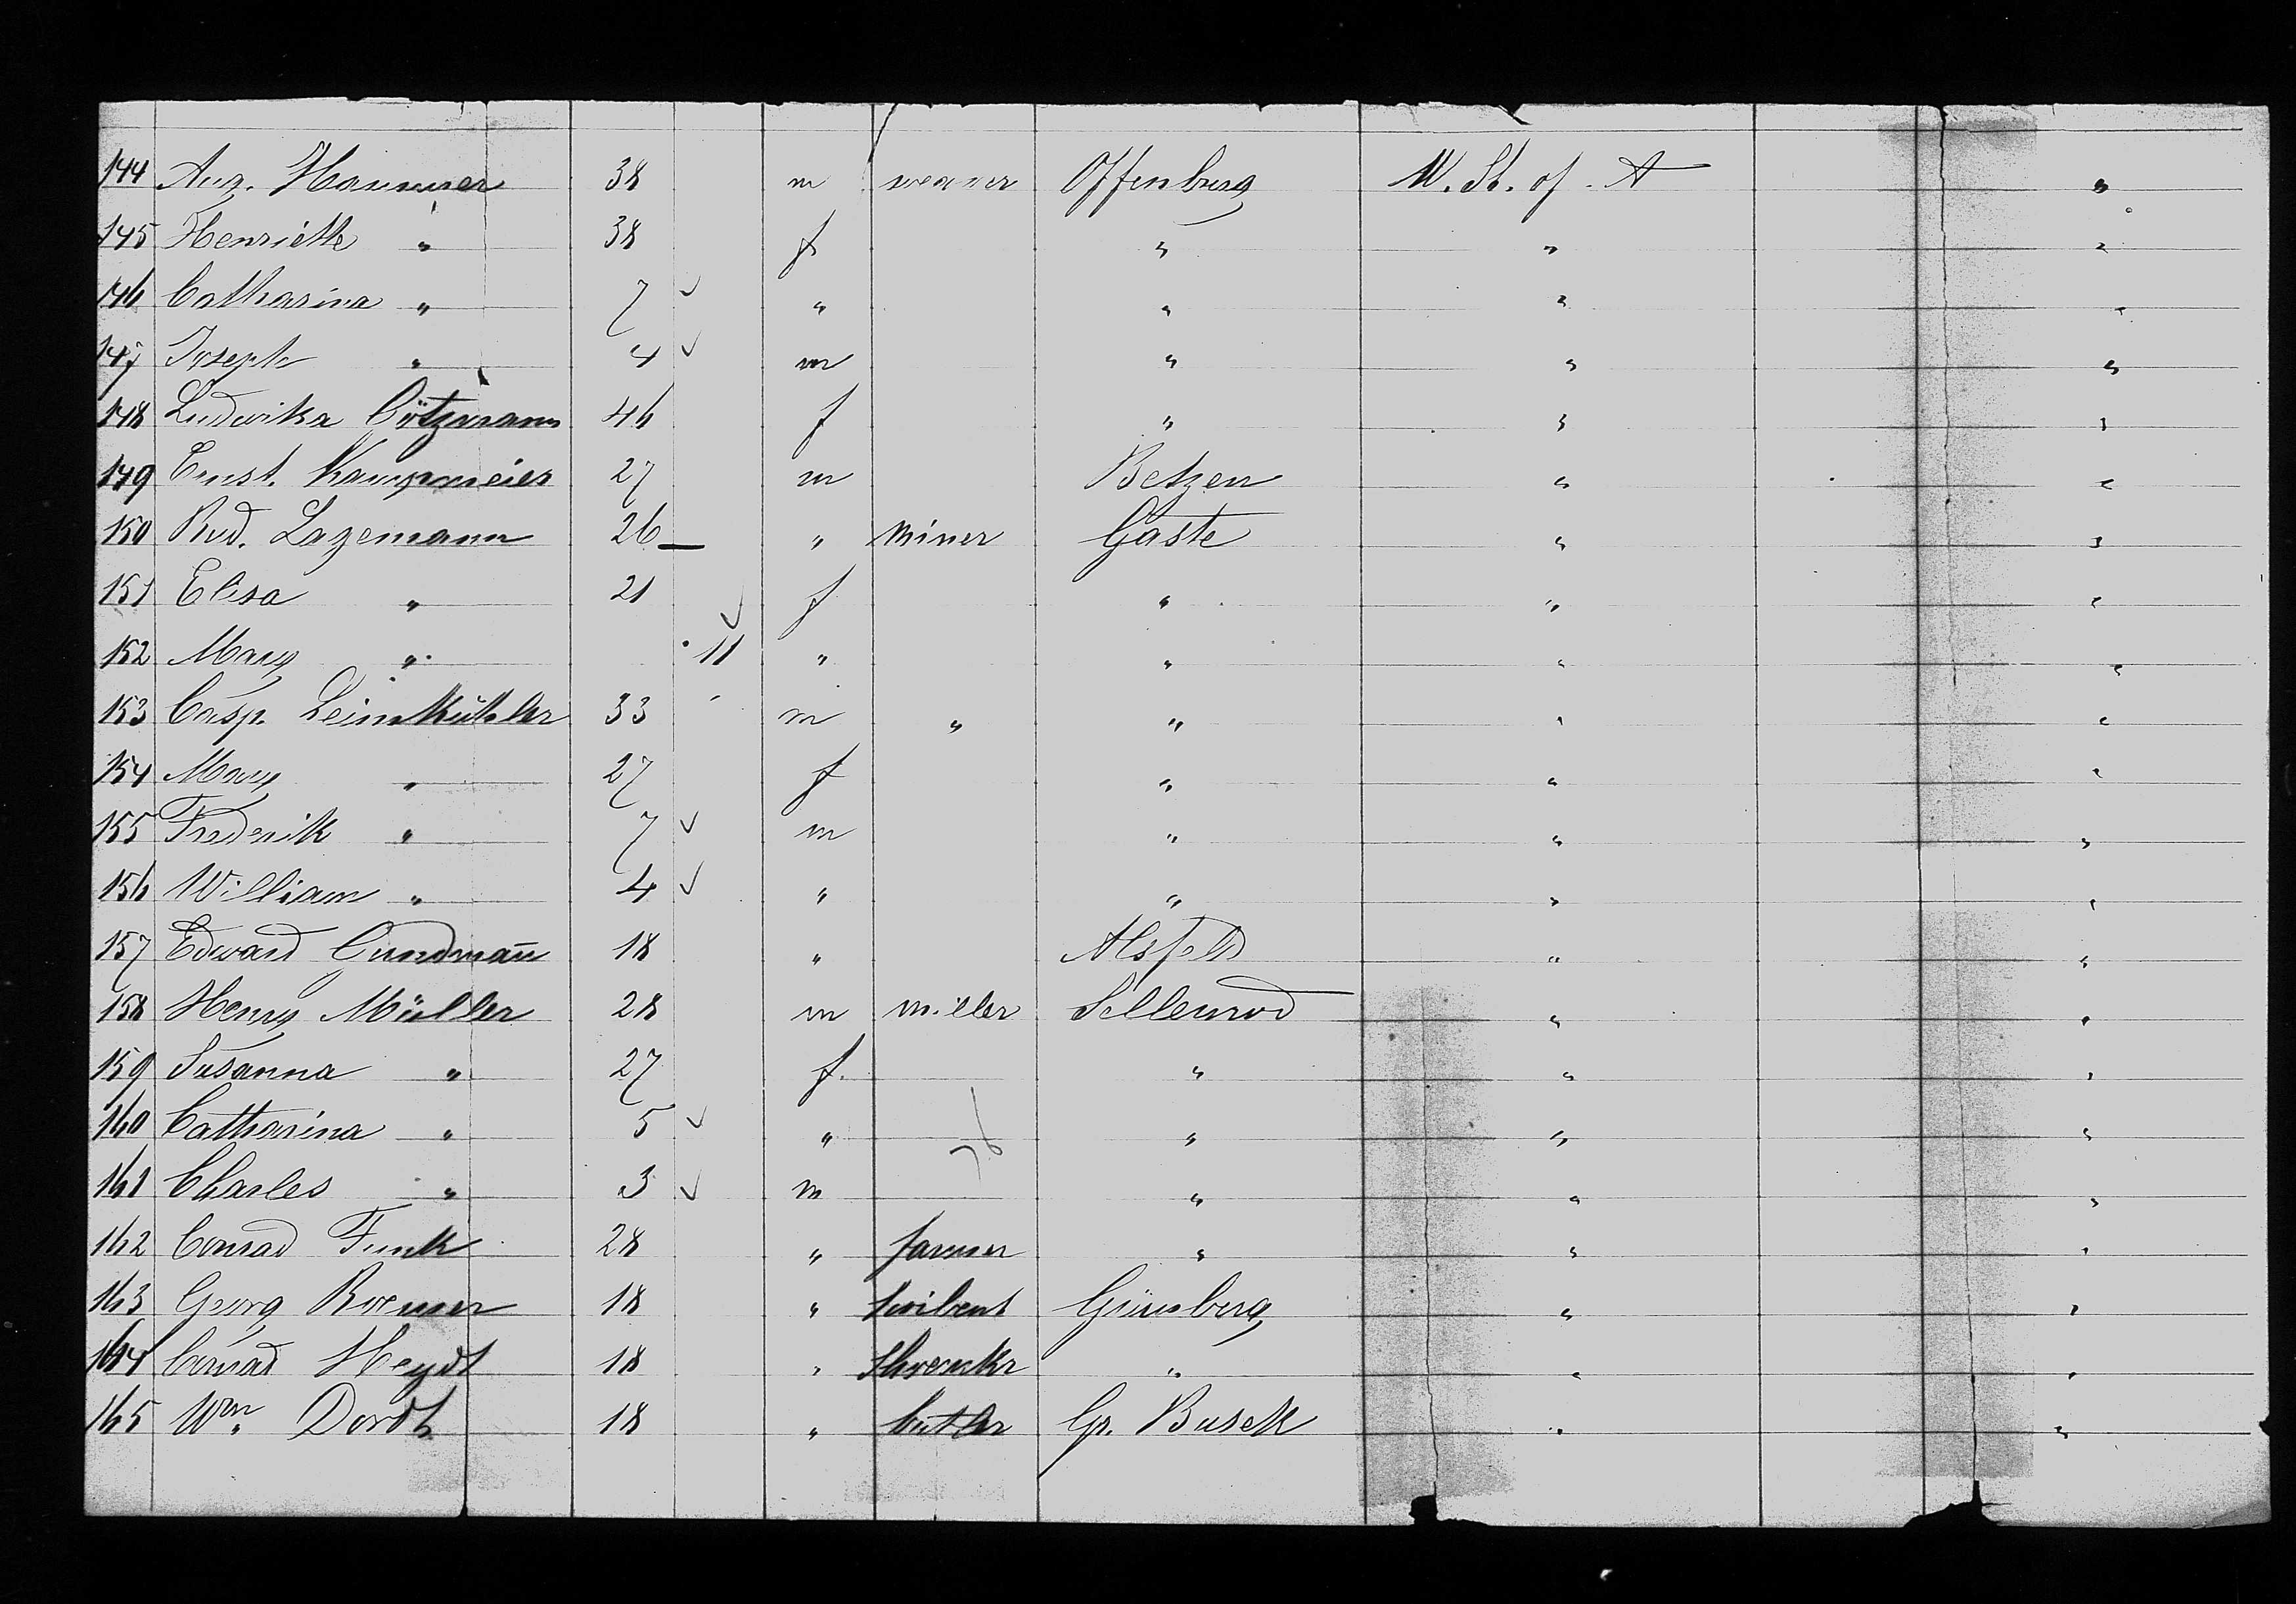 144 Aug. Hammer 38 m weaver Offenburg U. St. of A "
145 Henriette " 38 f " " "
146 Catharina " 7 ✓ " " " "
147 Joseph " 4 ✓ m " " "
148 Ludwika Götzmann 46 f " " "
149 Ernst. Kampmeier 27 m Betzen " "
150 Rud. Lagemann 26 — " miner Gaste " "
151 Elisa " 21 f " " "
152 Mary " 11 ✓ " " " "
153 Casp. Leimkühler 33 m " " " "
154 Mary " 27 f " " "
155 Frederik " 7 ✓ m " " "
156 William " 4 ✓ " " " "
157 Edward Gundmañ 18 " Alsfeld " "
158 Henry Müller 28 m miller Sellenrod " "
159 Susanna " 27 f. " " "
160 Catharina " 5 ✓ " " " "
161 Charles " 3 ✓ m " " "
162 Conrad Funk 28 " farmer " " "
163 Georg Roemer 18 " scribent Günsberg " "
164 Conrad Heydt 18 " Shoemkr " " "
165 Wm. 18 " butler Gr. Buseck " "